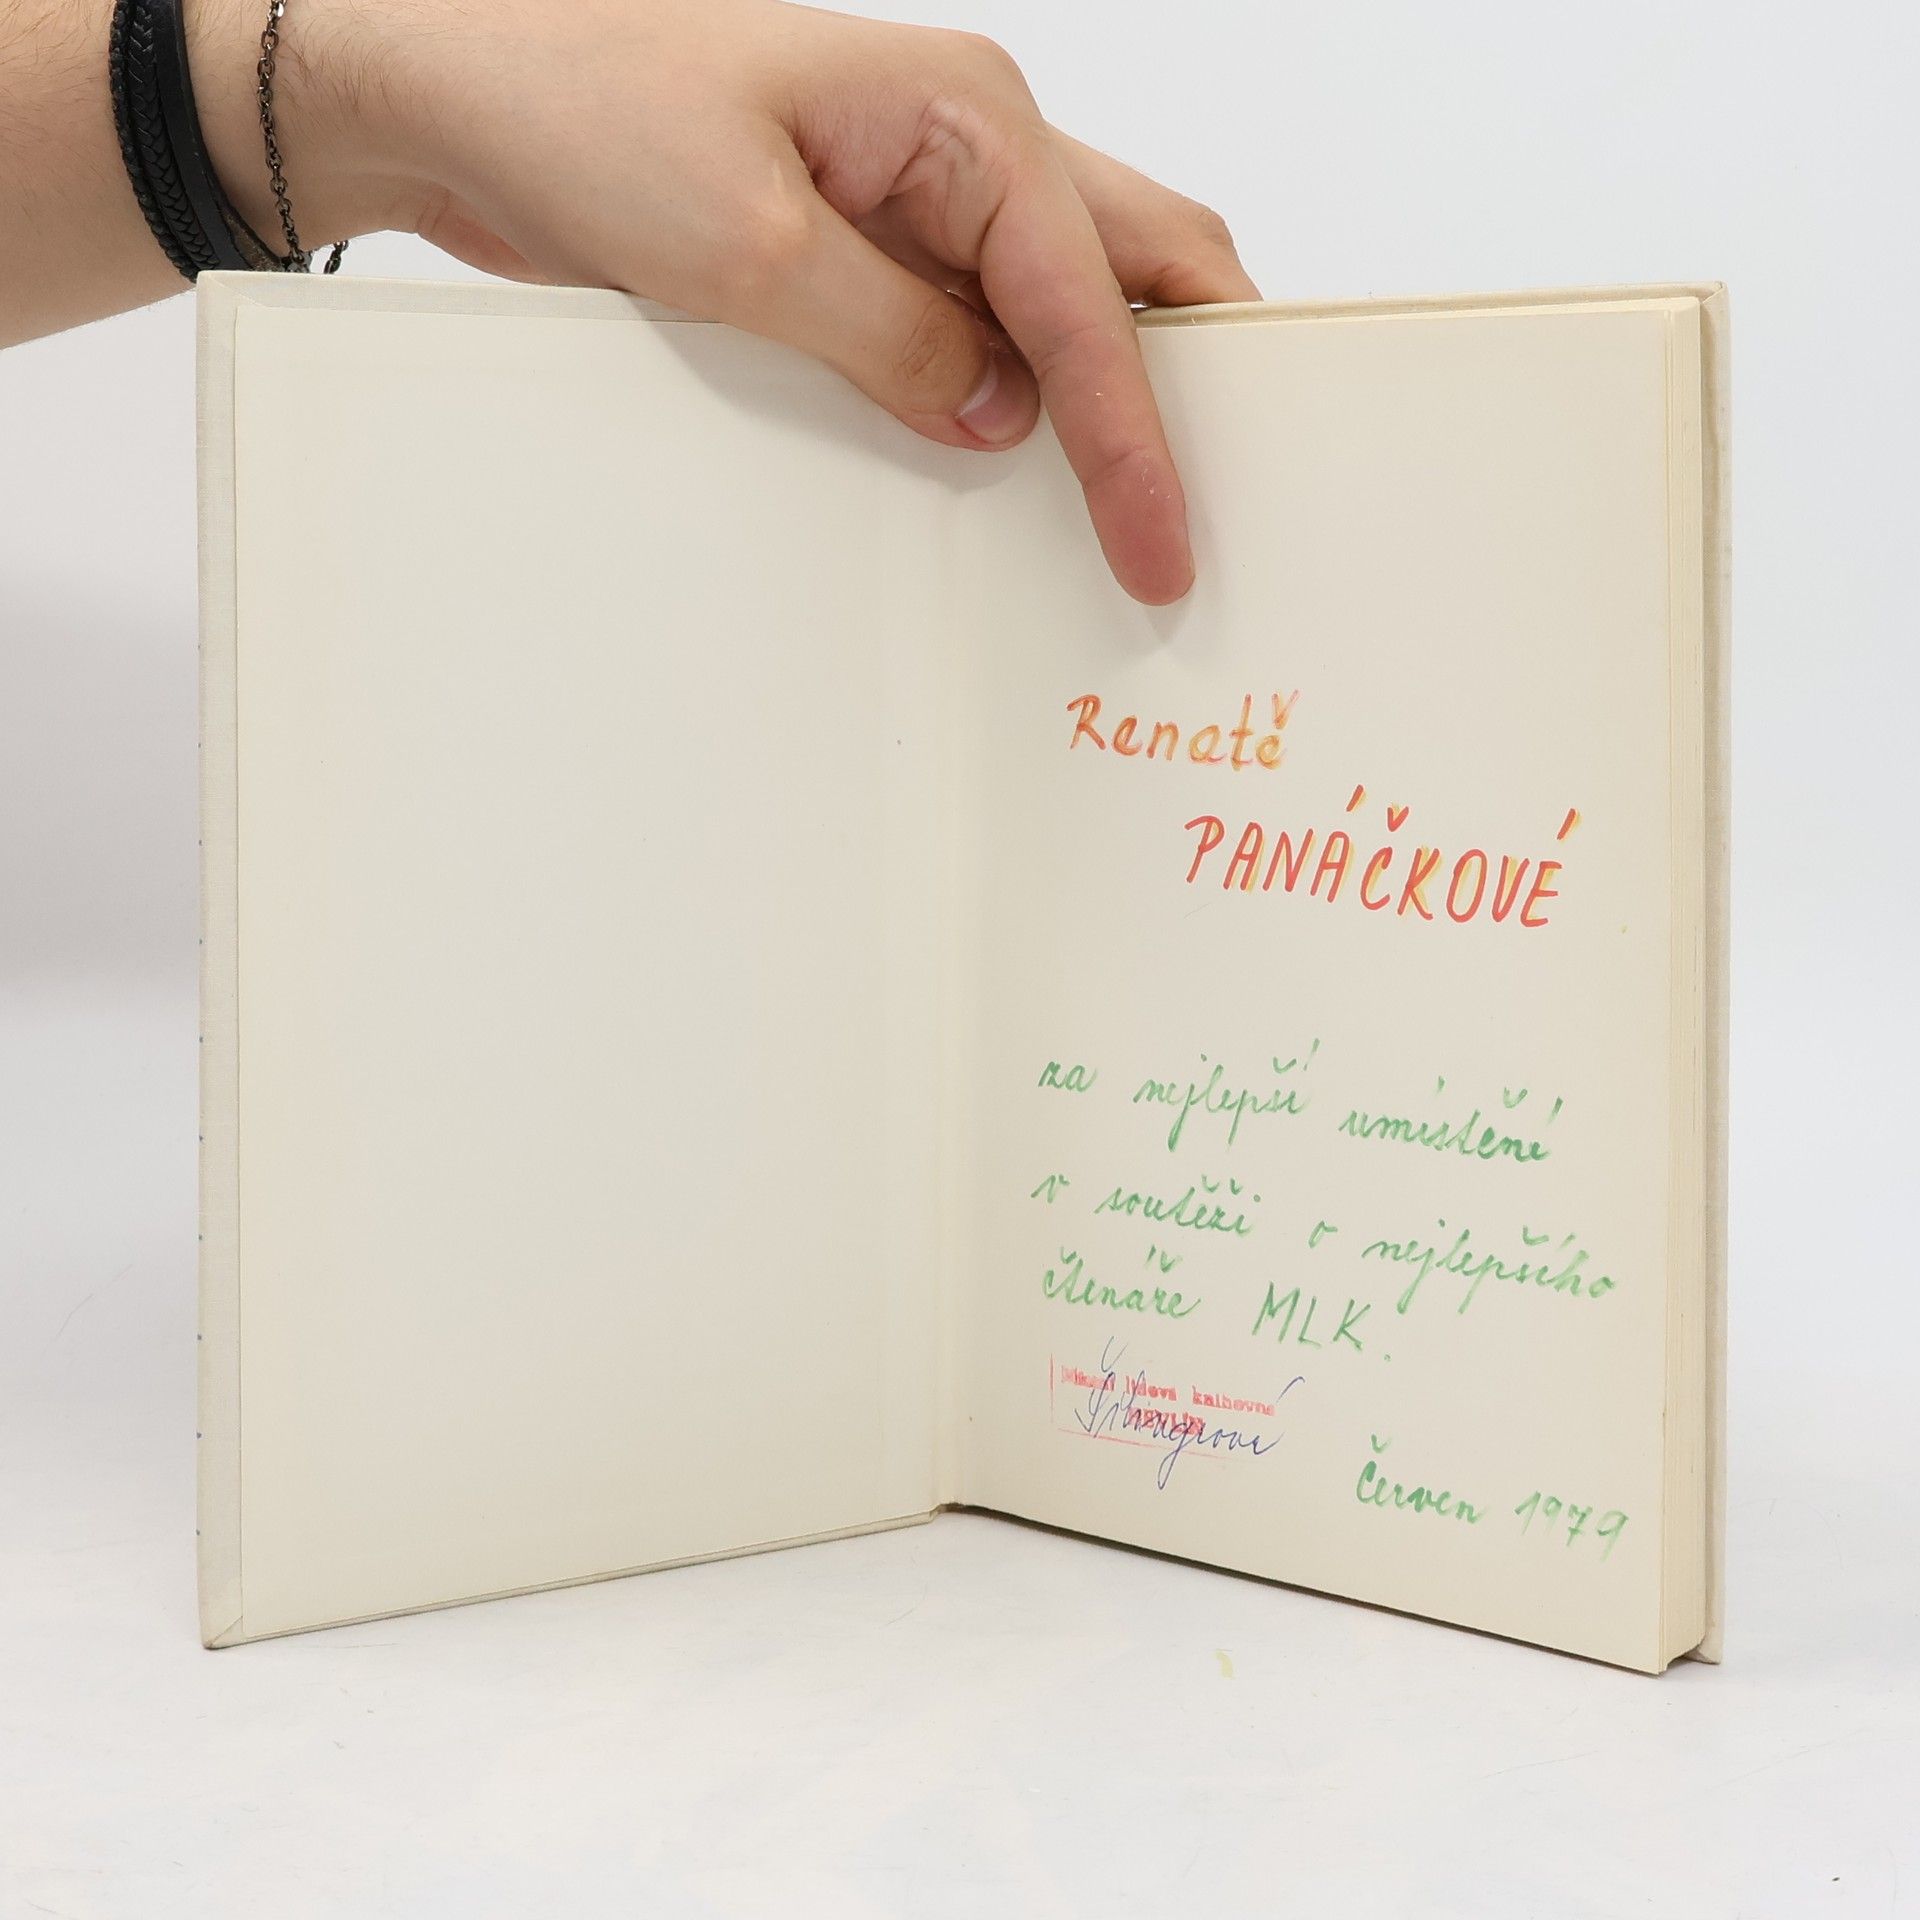 Renatě
PANÁČKOVÉ
za nejlepší umístění
v soutěži o nejlepšího
čtenáře MLK.
lidová knihovna
Červen 1979